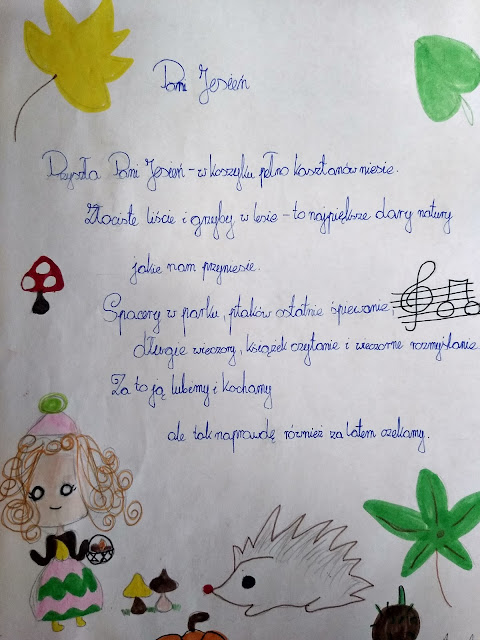 Pani Jesień
Przyszła Pani Jesień - w koszyku pełno kasztanów niesie.
Złociste liście i grzyby w lesie - to najpiękrze dary natury
jakie nam przyniesie.
Spacery w parku, ptaków ostatnie śpiewanie,
długie wieczory, książek czytanie i wieczorne rozmyślanie.
Za to ją lubimy i kochamy
ale tak naprawdę również za latem czekamy.